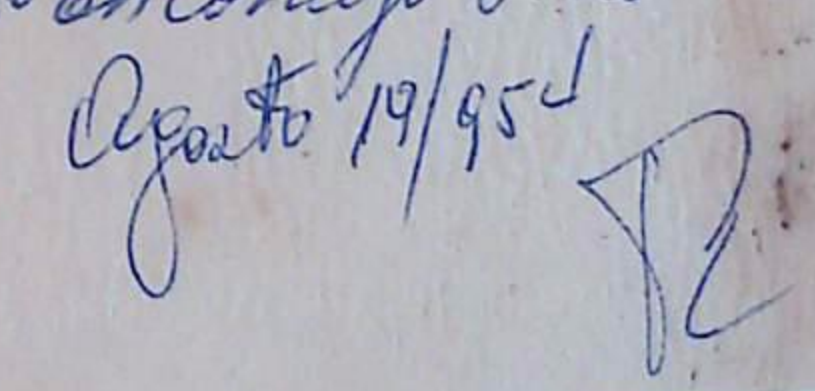 Agosto 19/954
R